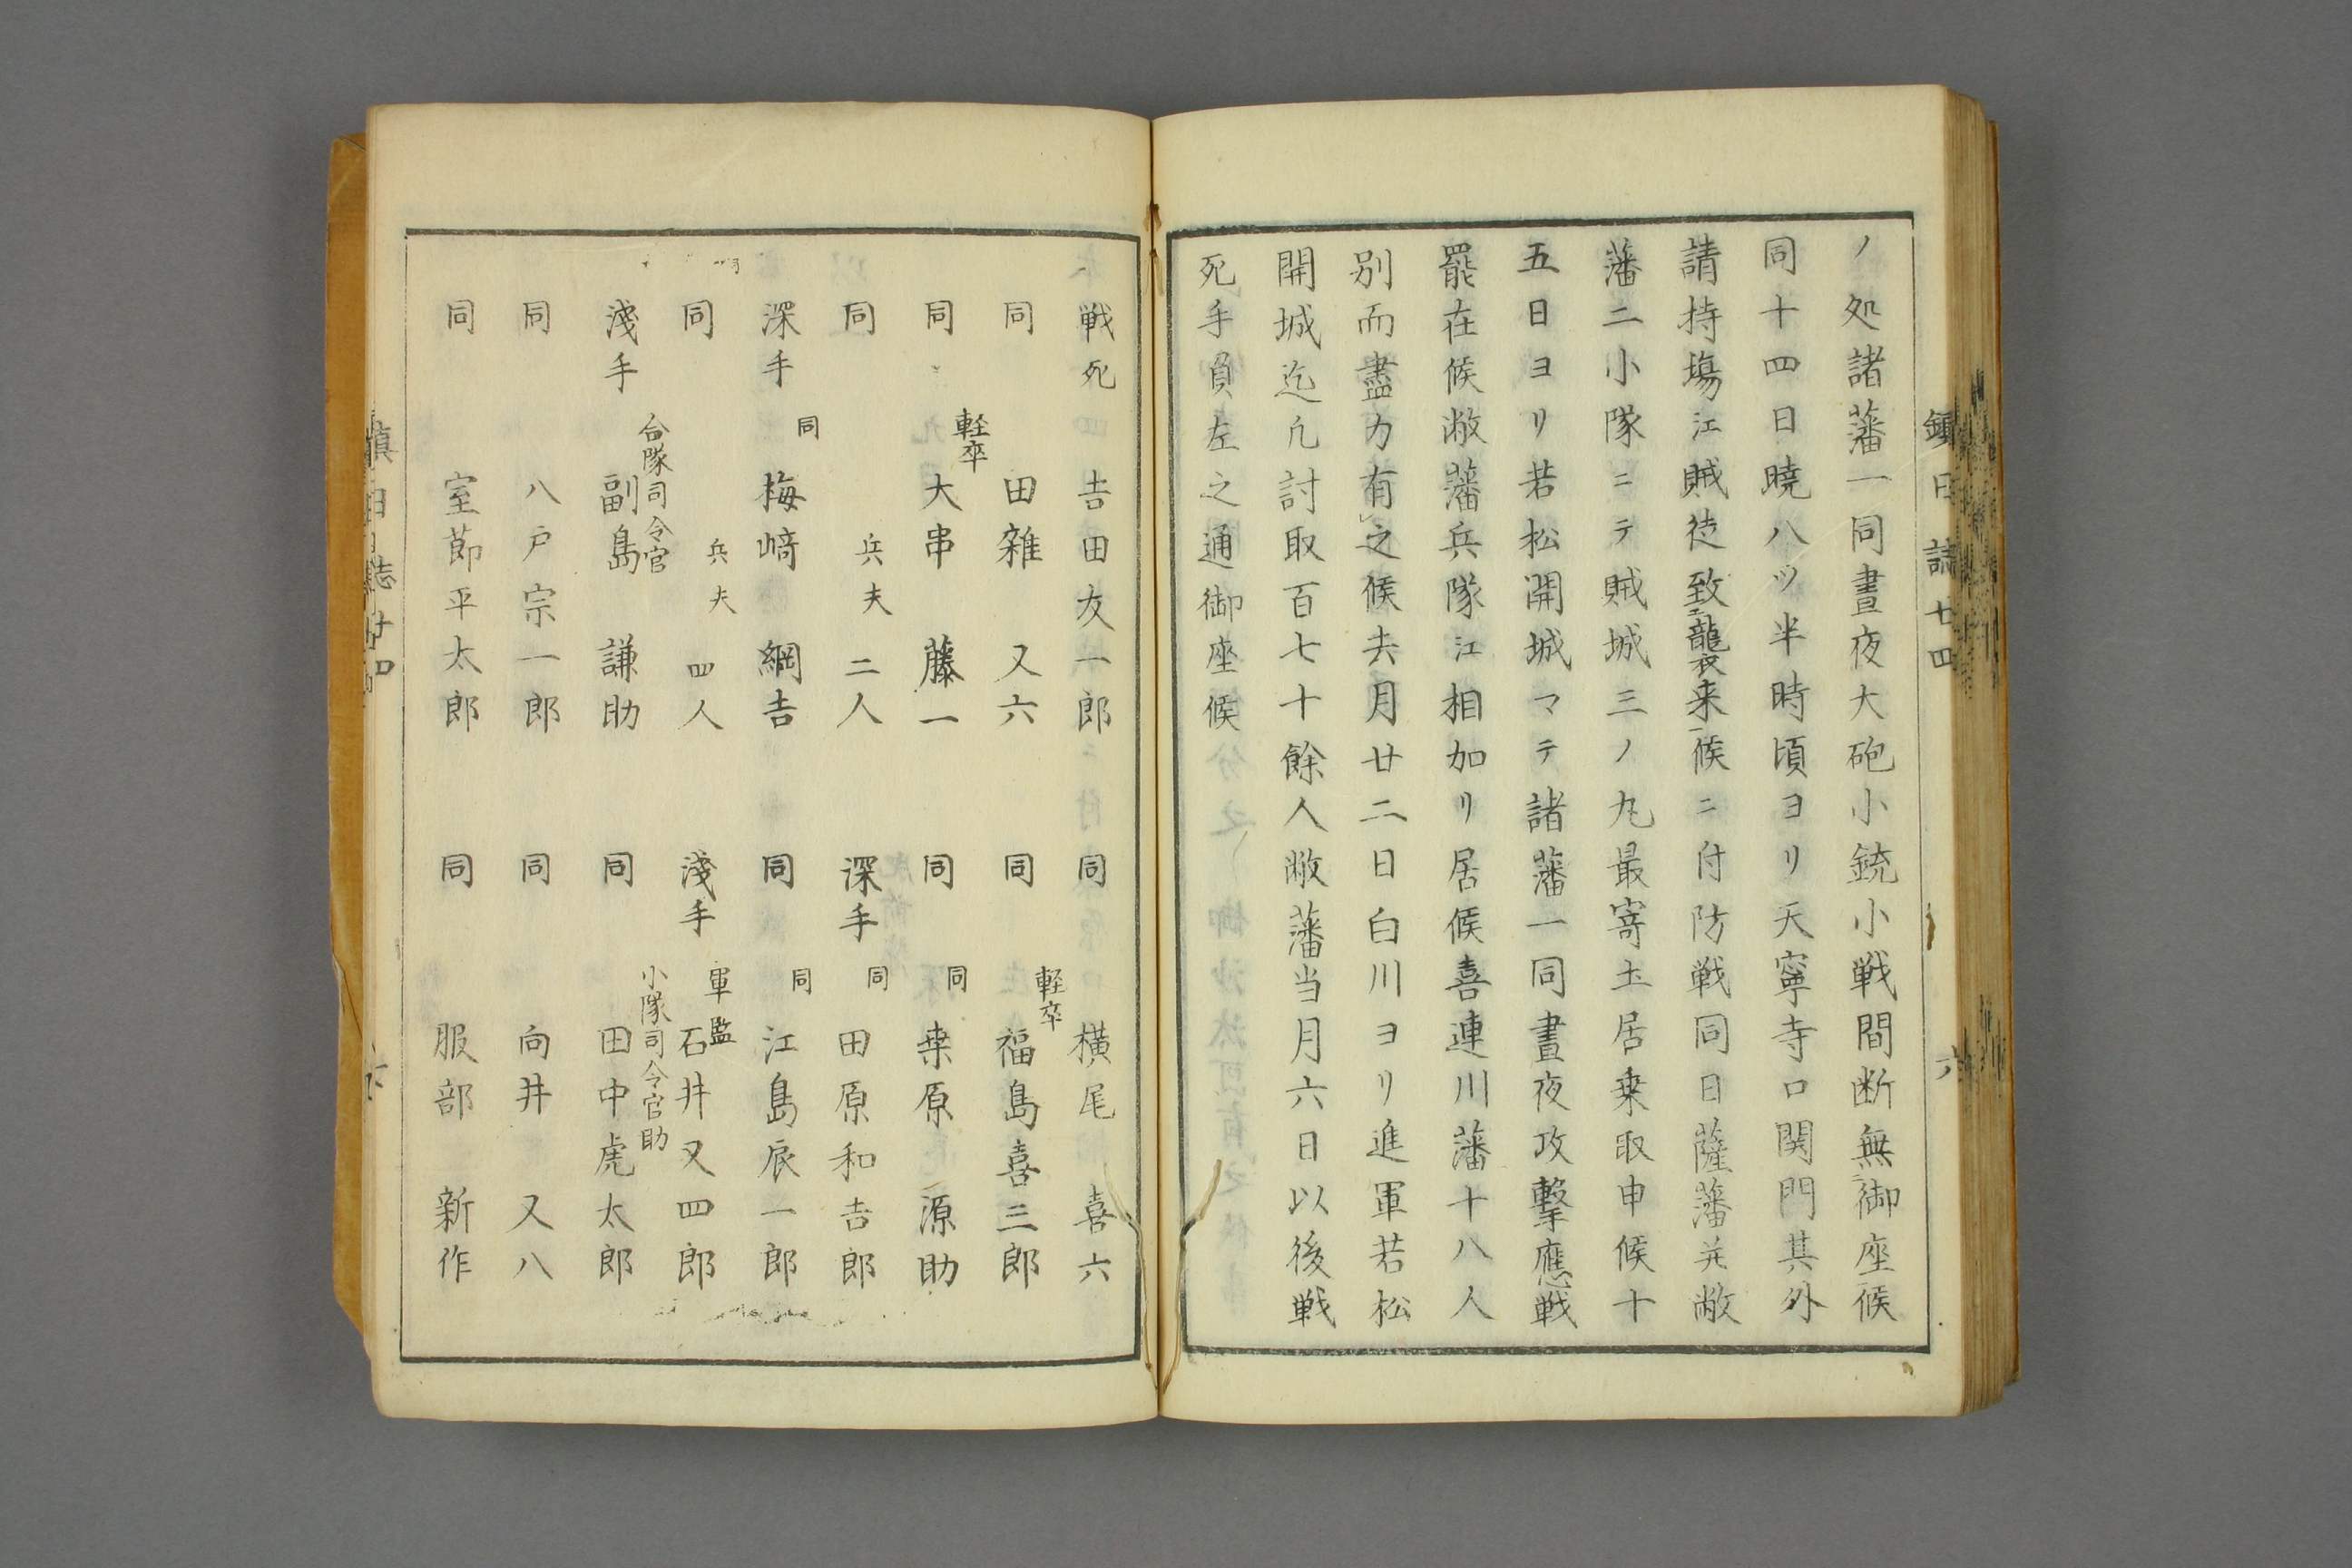 ノ処諸藩一同晝夜大砲小銃小戦間断無御座候
同十四日曉八ツ半時頃ヨリ天寧寺口関門其外
請持塲江賊徒致襲来候ニ付防戦同日薩藩并敝
藩二小隊ニテ賊城三ノ丸最寄土居乗取申候十
五日ヨリ若松開城マテ諸藩一同晝夜攻撃應戦
罷在候敝藩兵隊江相加リ居候喜連川藩十八人
別而盡力有之候去月廿二日白川ヨリ進軍若松
開城迄凡討取百七十餘人敝藩当月六日以後戦
死手負左之通御座候
戦死 吉田友一郎 同 横尾 喜六
同 田雑 又六 同 軽卒 福島喜三郎
同 軽卒 大串 藤一 同 同 桒原 源助
同 兵夫 二人 深手 同 田原和吉郎
深手 同 梅﨑 綱吉 同 同 江島辰一郎
同 兵夫 四人 淺手 軍監 石井又四郎
淺手 合隊司令官 副島 謙助 同 小隊司令官助 田中虎太郎
同 八戸宗一郎 同 向井 又八
同 室節平太郎 同 服部 新作
鎮日誌 七四 六